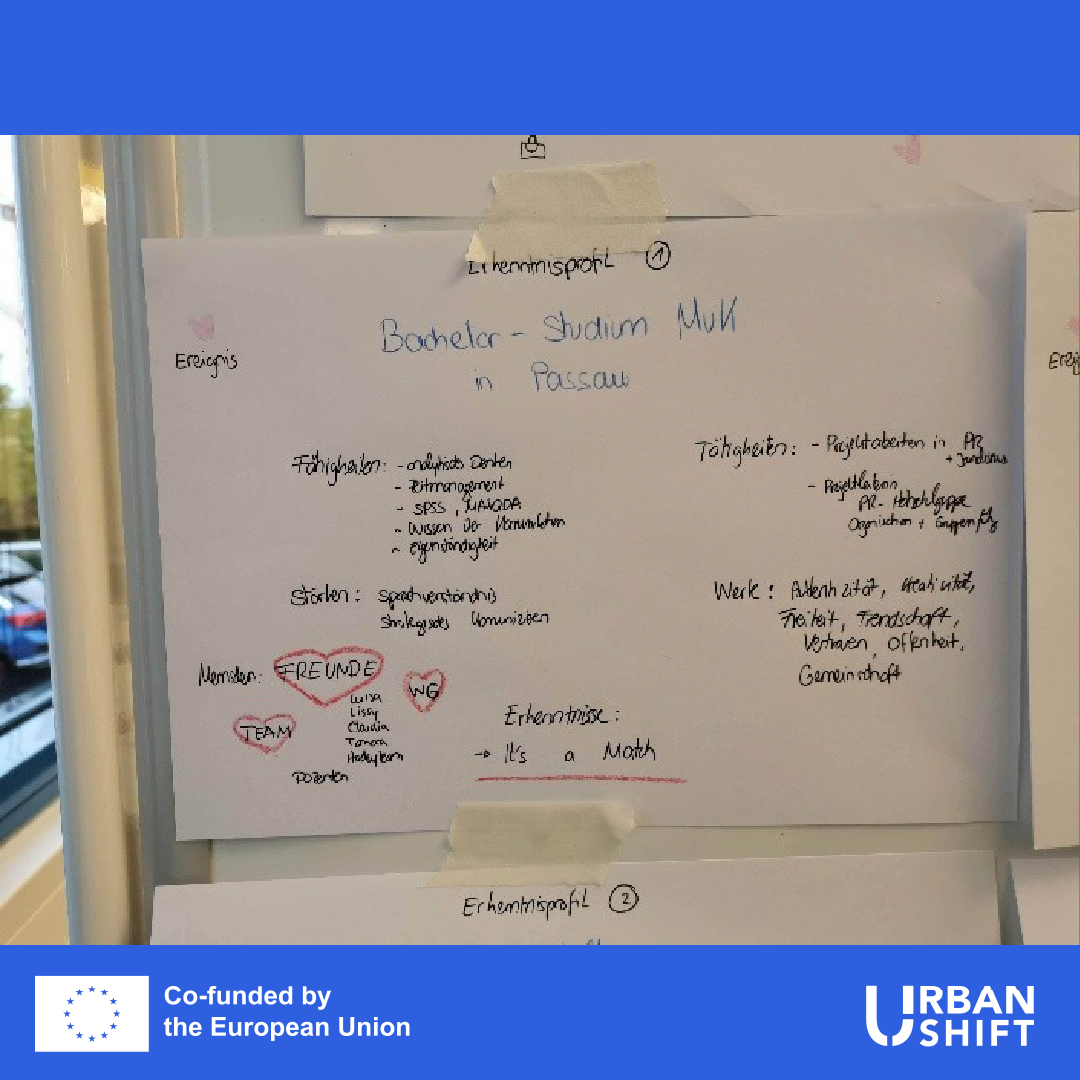 Erkenntnisprofil 1
Bachelor - Studium MuK
in Passau
Ereignis
Fähigkeiten: - analytisches Denken
- Zeitmanagement
- SPSS, MAXQDA
- Wissen der Kommunikation
- Eigenständigkeit
Tätigkeiten: - Projektarbeiten in PR
+ Journalismus
PR- Hochschulgruppe
Organisation +
Stärken: Sprachverständnis
Strategisches Kommunizieren
Werte: Authentizität, Kreativität,
Freiheit, Freundschaft,
Vertrauen, Offenheit,
Gemeinschaft
Menschen: FREUNDE
WG
TEAM
Luisa
Lissy
Claudia
Tamara
Hockeyteam
Dozenten
Erkenntnisse:
→ It's a Match
Erkenntnisprofil 2
Co-funded by
the European Union
URBAN
SHIFT